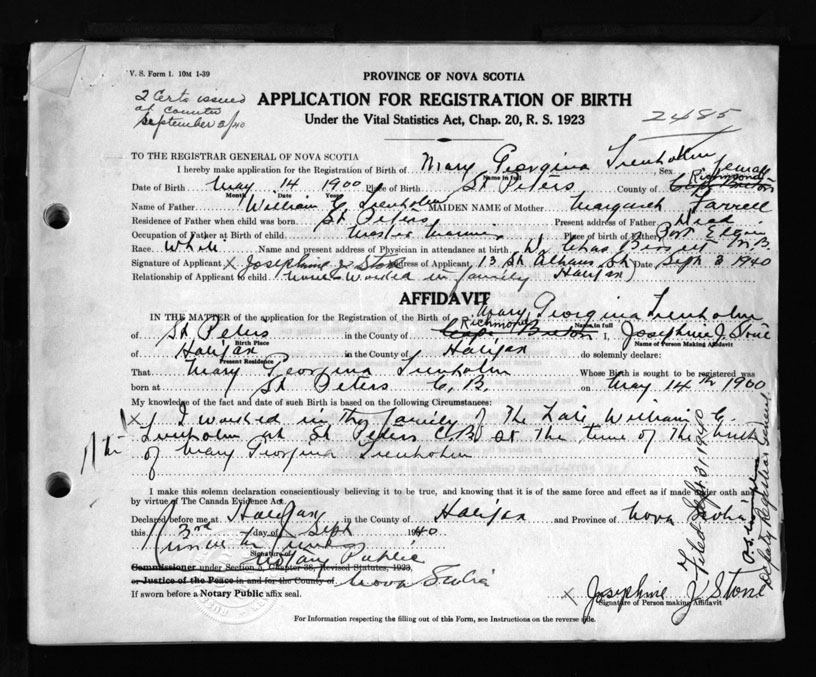 V. S. Form 1. 10M 1-39
PROVINCE OF NOVA SCOTIA
2 Certs issued
at counter
September 3/40
APPLICATION FOR REGISTRATION OF BIRTH
2485
Under the Vital Statistics Act, Chap. 20, R. S. 1923
TO THE REGISTRAR GENERAL OF NOVA SCOTIA
I hereby make application for the Registration of Birth of Mary Georgina Trenholm Sex Female
Name in full
Richmond
Date of Birth May 14 1900 Place of Birth St Peters County of Cape Breton
Month Day Year
Name of Father William G. Trenholm MAIDEN NAME of Mother Margaret Farrell
Residence of Father when child was born St Peters Present address of Father Dead
Occupation of Father at Birth of child Master Mariner Place of birth of Father Port Elgin N.B.
Race White Name and present address of Physician in attendance at birth Dr Chas
Signature of Applicant X Josephine J Stone Address of Applicant 13 St Albans St Date Sept 3 1940
Relationship of Applicant to child worked in family Halifax
AFFIDAVIT
IN THE MATTER of the application for the Registration of Birth of Mary Georgina Trenholm
Richmond Name in full
of St Peters in the County of Cape Breton I, Josephine J. Stone
Birth Place Name of Person Making Affidavit
of Halifax in the County of Halifax do solemnly declare:
Present Residence
That Mary Georgina Trenholm Whose Birth is sought to be registered was
born at St Peters C. B. on May 14th 1900
My knowledge of the fact and date of such Birth is based on the following Circumstances:
X I worked in the family of The Late William G.
Trenholm at St Peters C.B. at The time of The birth
of Mary Georgina Trenholm
I make this solemn declaration conscientiously believing it to be true, and knowing that it is of the same force and effect as if made under oath and
by virtue of The Canada Evidence Act.
Declared before me at Halifax in the County of Halifax and Province of Nova Scotia
this 3rd day of Sept 1940
Signature of
Notary Public
Commissioner under Section 5, Chapter 38, Revised Statutes, 1923,
or Justice of the Peace in and for the County of Nova Scotia
If sworn before a Notary Public affix seal.
X Josephine J Stone
Signature of Person making Affidavit
For Information respecting the filling out of this Form, see Instructions on the reverse side.
Filed Sept 3, 1940
Deputy Registrar General